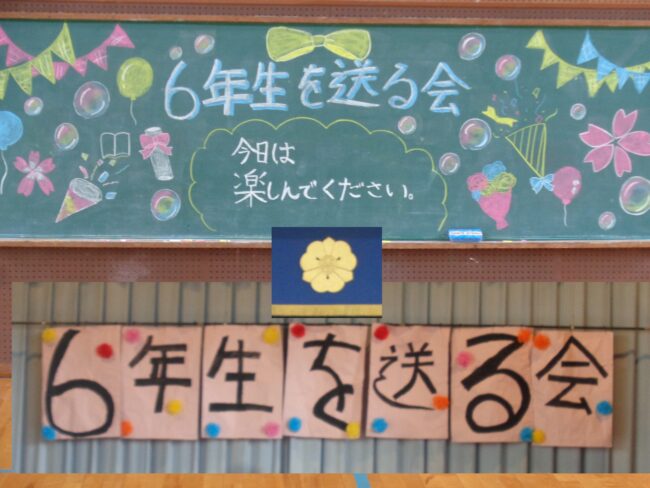 6年生を送る会
今日は
楽しんでください。
6年生を送る会